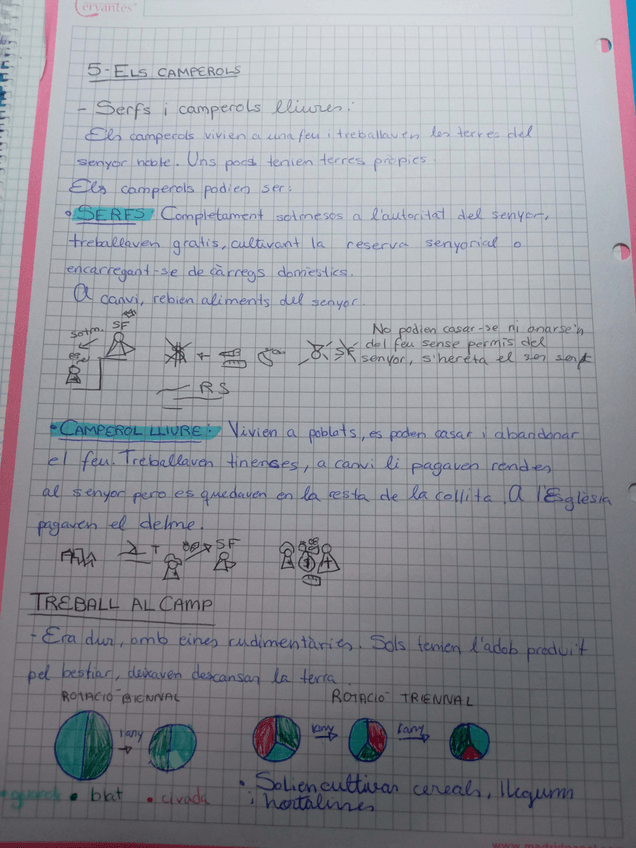 Cervantes
5-ELS CAMPEROLS
- Serfs i camperols lliures:
Els camperols vivien a una feu i treballaven les terres del
senyor noble. Uns pocs tenien terres pròpies.
Els camperols podien ser:
• SERFS: Completament sotmesos a l'autoritat del senyor,
treballaven gratis, cultivant la reserva senyorial o
encarregant-se de càrregs domèstics.
A canvi, rebien aliments del senyor.
Sotm.
SF
RS
No podien casar-se ni anarse'n
del feu sense permís del
senyor, s'hereta el ser serf
• CAMPEROL LLIURE: Vivien a poblats, es poden casar i abandonar
el feu. Treballaven tinenses, a canvi li pagaven rendes
al senyor pero es quedaven en la resta de la collita. A l'Església
pagaven el delme.
T
SF
TREBALL AL CAMP
- Era dur, amb eines rudimentàries. Sols tenien l'adob produït
pel bestiar, deixaven descansar la terra.
ROTACIÓ BIENNAL
ROTACIÓ TRIENNAL
1 any
1 any
1 any
• blat
• civada
• Solien cultivar cereals, llegums
i hortalines